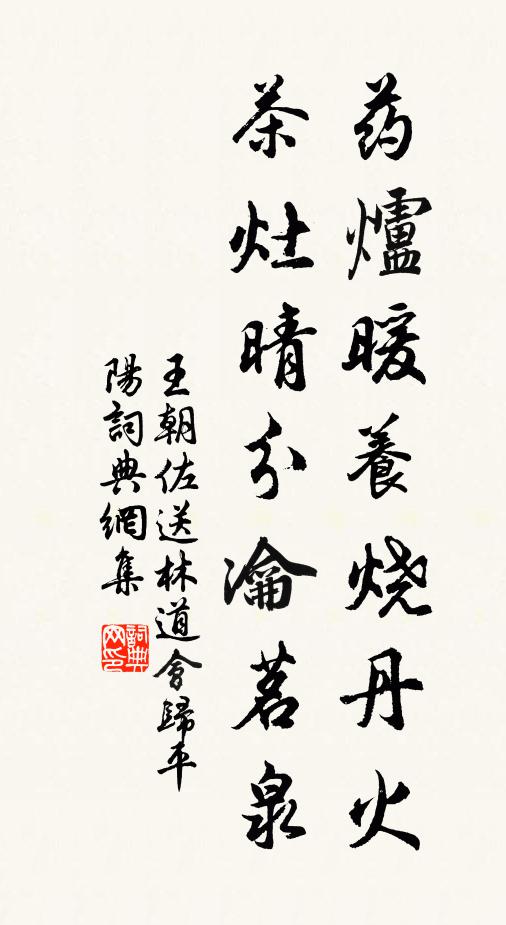 药爐暖養烧丹火
茶灶晴分瀹茗泉
王朝佐送林道會歸平
陽詞典網集
詞典网印